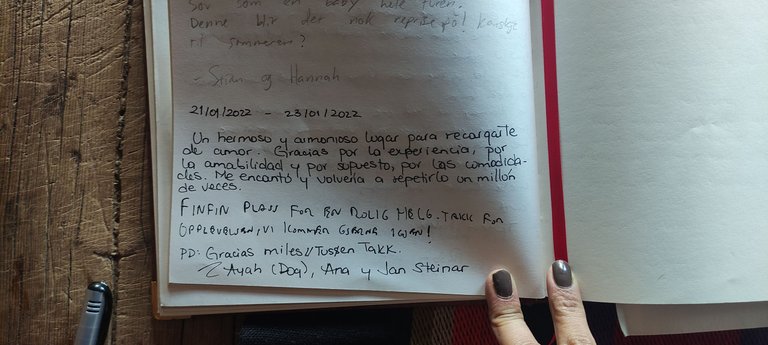 Sov som en baby hele turen.
Denne blir det nok reprise på! Kanskje
til sommeren?
- Stian og Hannah
21/01/2022 - 23/01/2022
Un hermoso y armonioso lugar para recargarte
de amor. Gracias por la experiencia, por
la amabilidad y por supuesto, por las comodida-
des. Me encantó y volvería a repetirlo un millón
de veces.
FINFIN PLASS FOR EN ROLIG HELG. TAKK FOR
OPPLEVELSEN, VI KOMMER GJERNE IGJEN!
PD: Gracias miles // Tusen Takk.
Ayah (Dog), Ana y Jan Steinar